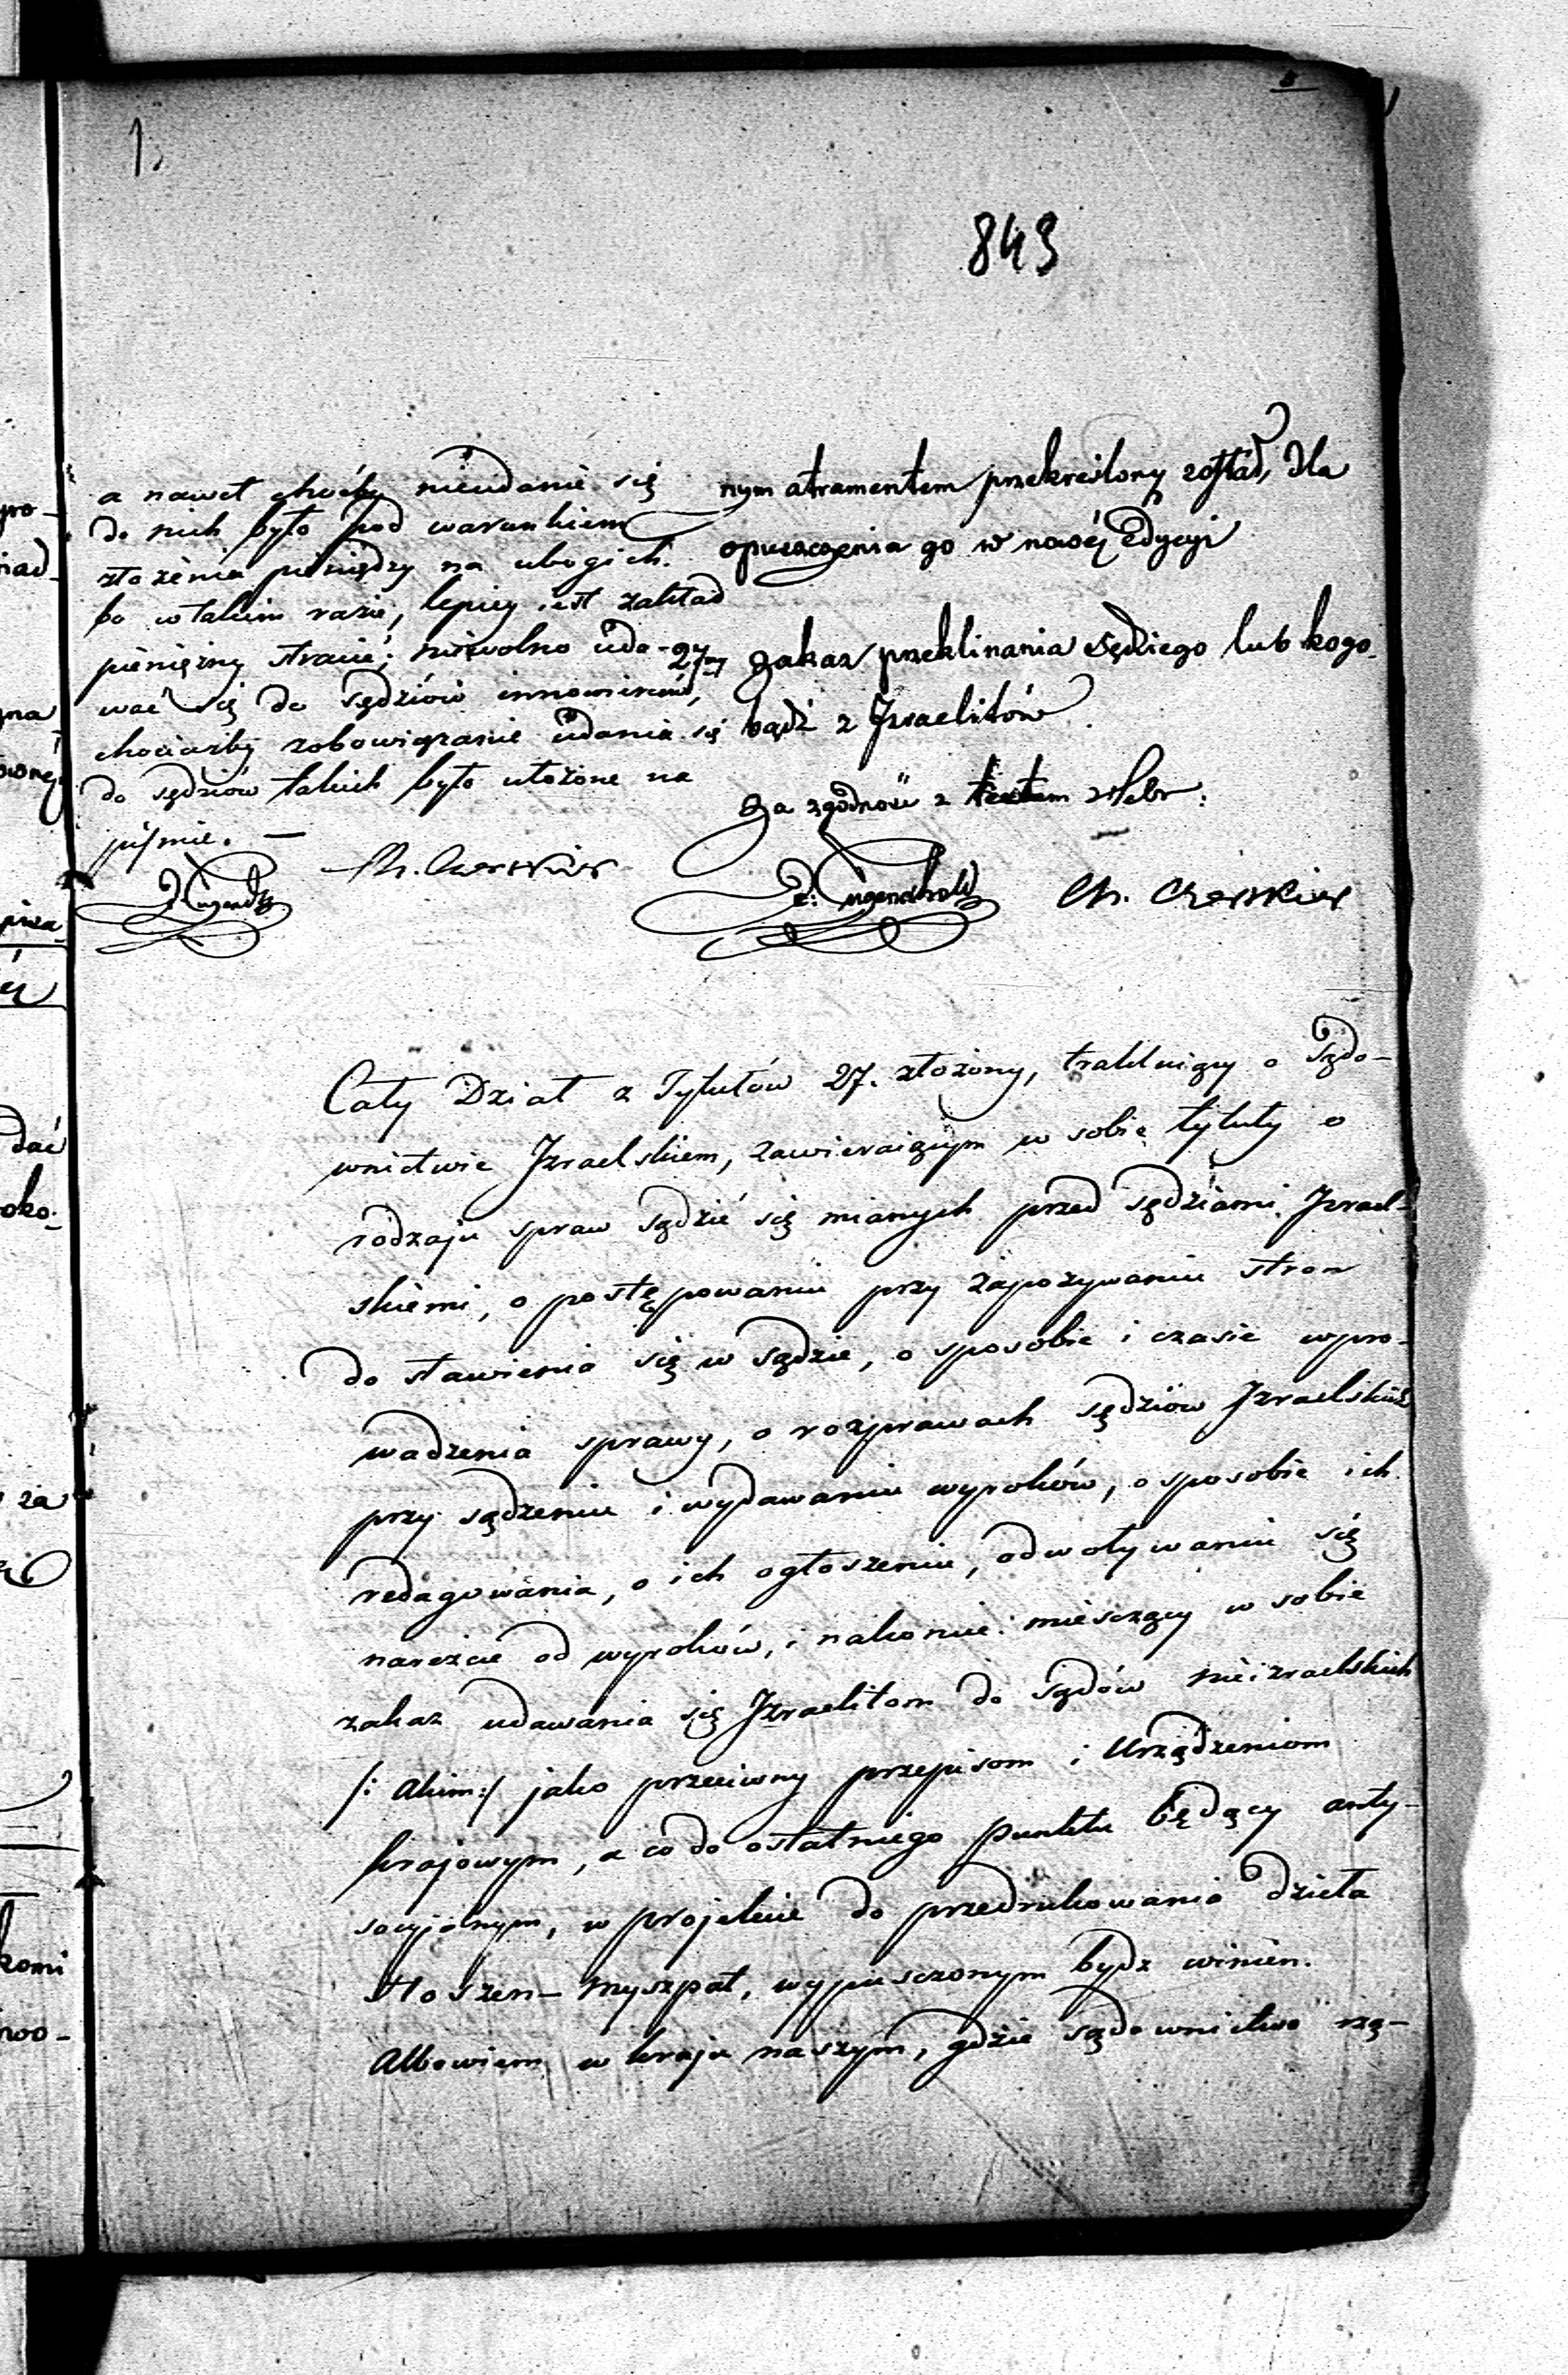 843
a nawet choćby nieudanie się
do nich było pod warunkiem
złożenia pieniędzy na ubogich.
bo w takim razie, lepiey iest zakład
pieniężny stracić; niewolno uda-
wać się do sędziów innowierców,
chociażby zobowiązanie udania się
do sędziów takich było ułożone na
piśmie. —
J. Tugendh
Ch. Czerskier
nym atramentem przekreślony został, dla
opuszczenia go w nowéj Edycyi
27my Zakaz przeklinania Sędziego lub kogo
bądź z Izraelitów.
Za zgodność z textem Hebr:
J: Tugendhold
Ch. Czerskier
Cały Dział z Tytułów 27. złożony, traktuiący o Sądo-
wnictwie Izraelskiem, zawieraiącym w sobie tytuły o
rodzaju spraw sądzić się mianych przed sędziami Izrael-
skiemi, o postępowaniu przy zapozywaniu stron
do stawienia się w sądzie, o sposobie i czasie wpro-
wadzenia sprawy, o rozprawach sędziów Izraelskich
przy sądzeniu i wydawaniu wyroków, o sposobie ich
redagowania, o ich ogłoszeniu, odwoływaniu się
nareszcie od wyroków, i nakoniec mieszczący w sobie
zakaz udawania się Izraelitom do sądów nieizraelskich
/: Akim :/ jako przeciwny przepisom i Urządzeniom
krajowym, a co do ostatniego punktu będący anty-
socyjalnym, w projekcie do przedrukowania dzieła
Hoszen-Myszpat, wypuszczonym bydz winien.
Albowiem w kraju naszym, gdzie sądownictwo rzą-